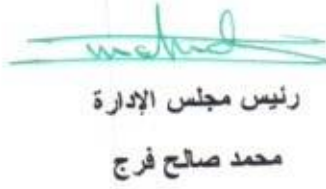 رئيس مجلس الإدارة
محمد صالح فرج